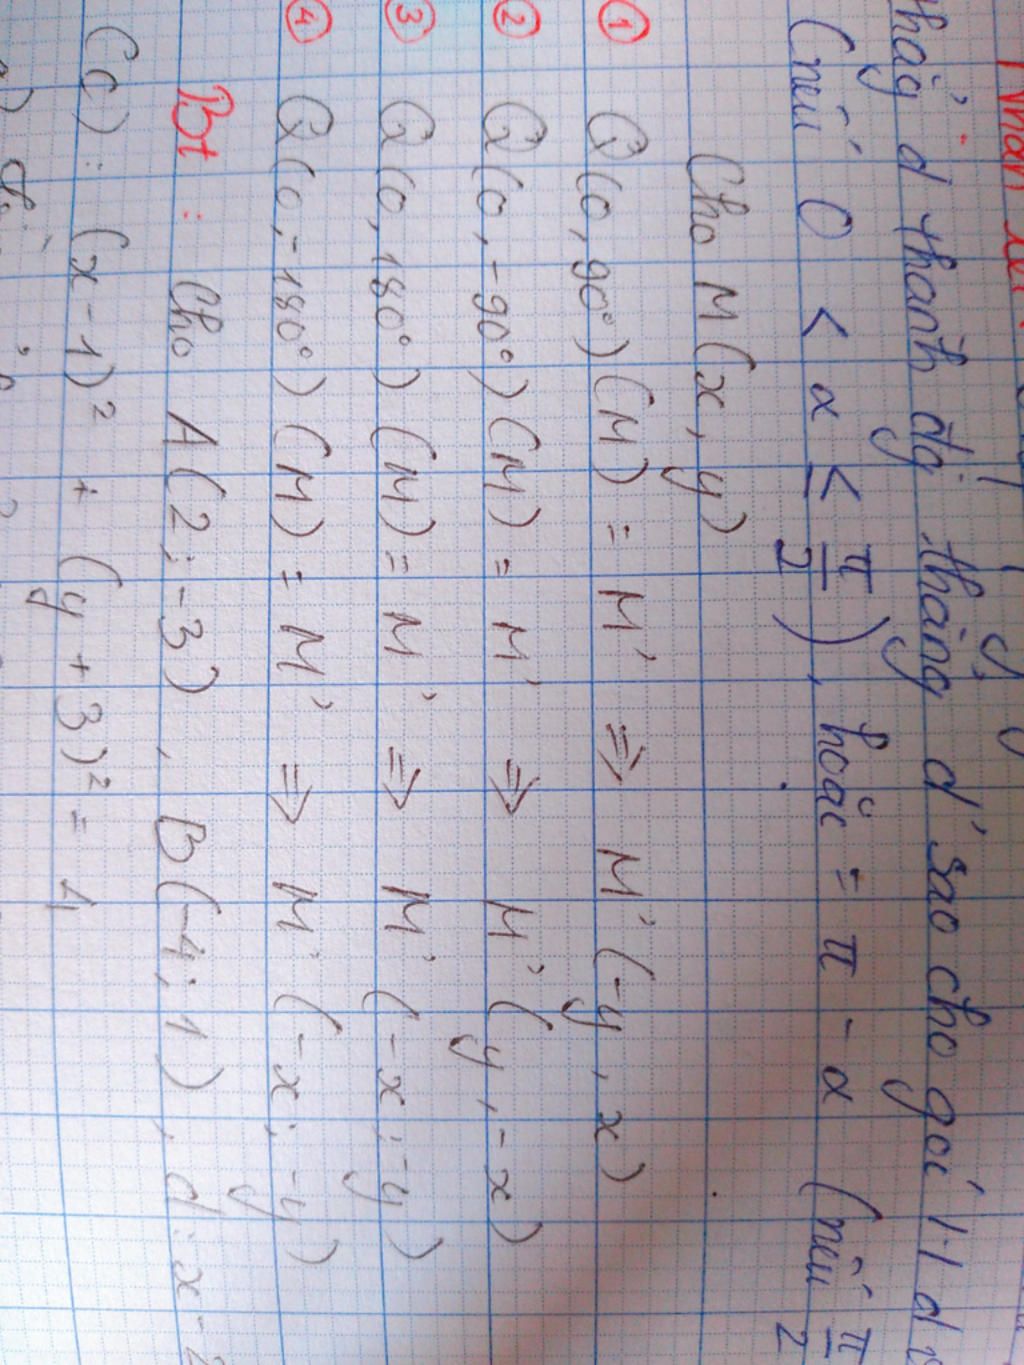 Nhận xét
thẳng d thành đg thẳng d' sao cho góc
(nếu 0 < α ≤ π/2), hoặc = π - α (nếu π/2
Cho M(x, y)
① Q(0, 90°)(M) = M' ⇒ M'(-y, x)
② Q(0, -90°)(M) = M' ⇒ M'(y, -x)
③ Q(0, 180°)(M) = M' ⇒ M'(-x; -y)
④ Q(0, -180°)(M) = M' ⇒ M'(-x; -y)
Bt : Cho A(2; -3), B(-4; 1), d: x - 2
(C): (x - 1)² + (y + 3)² = 4